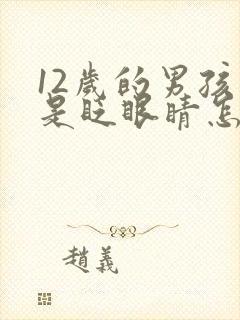 12歲的男孩
是眨眼睛怎
趙義